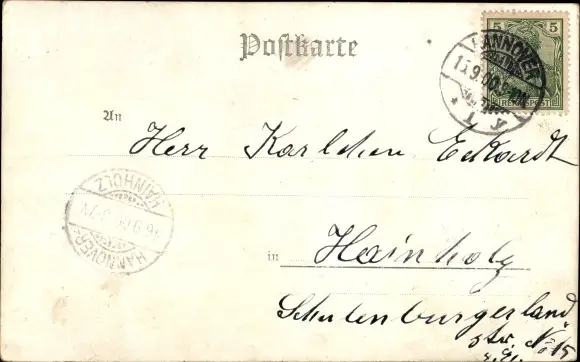 Postkarte
5 5
REICHSPOST
HANNOVER
15.9.00
1
An
Herr Karlchen Eckardt
HANNOVER-
16.9.00
HAINHOLZ
in Hainholz
Schulenburgerland
str. No 15